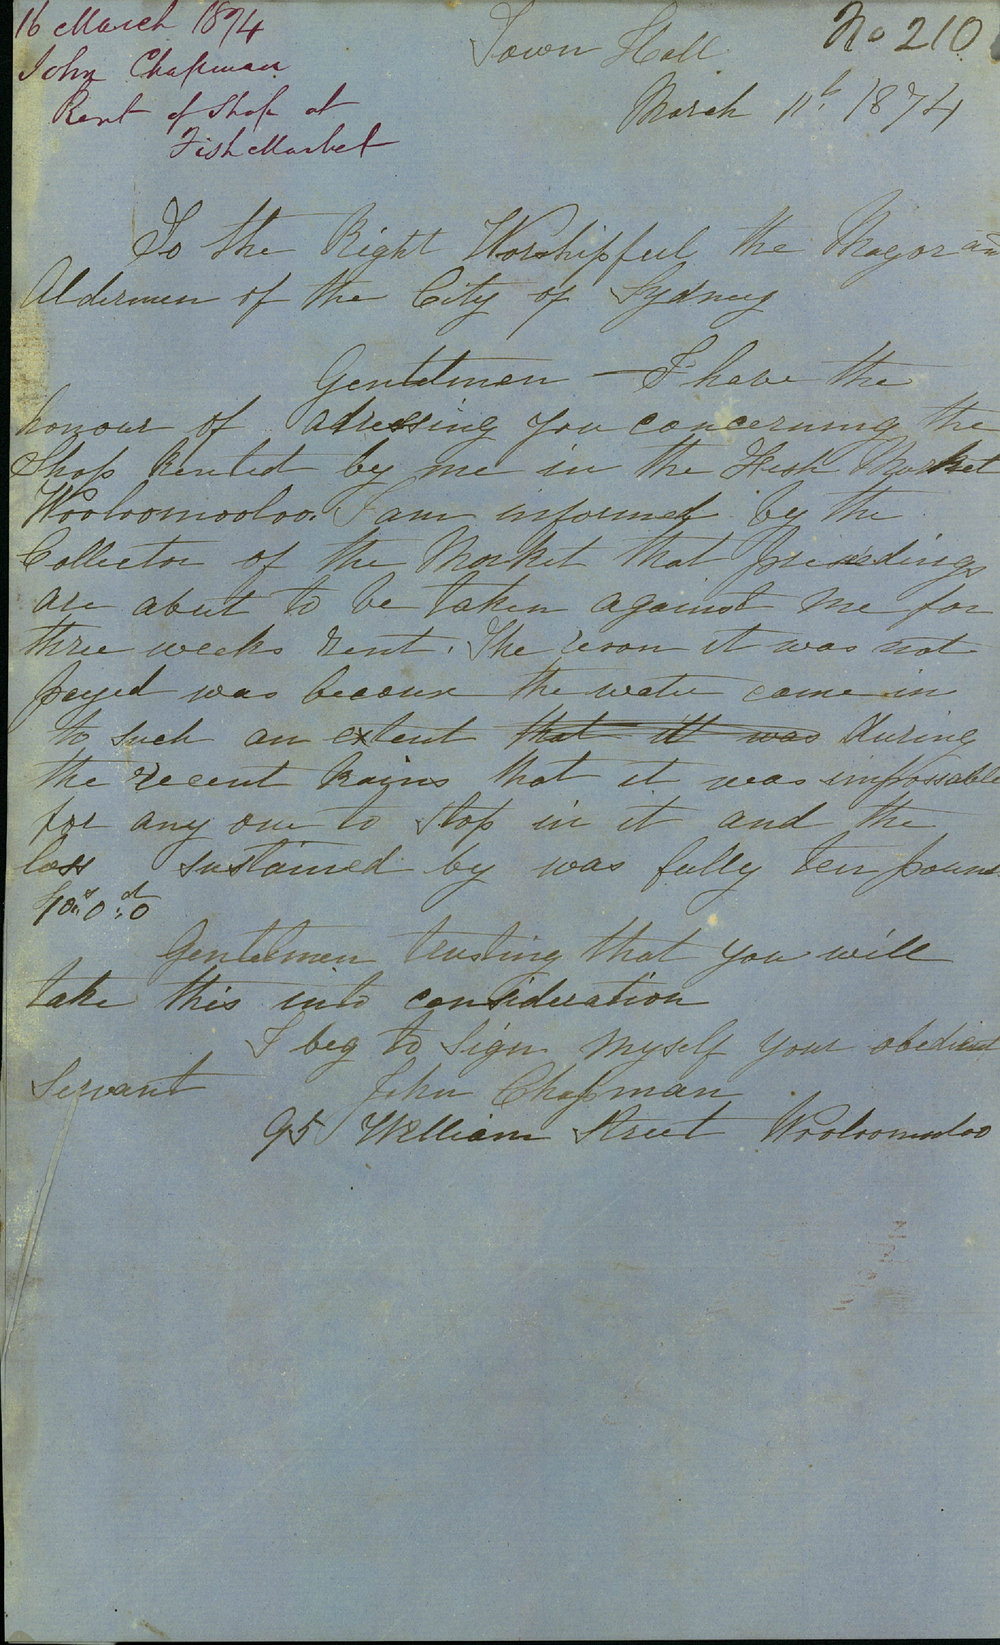 16 March 1874
John Chapman
Rent of Shop at
Fish Market
No 210
Town Hall
March 11th 1874
To the Right Worshipful the Mayor and
Aldermen of the City of Sydney
Gentlmen - I have the
honour of adressing you concerning the
Shop Rented by me in the Fish Market
Wooloomooloo. I am informed by the
Collector of the Market that
are about to be taken against me for
three weeks rent. The reson it was not
payed was because the water came in
to such an extent that it was during
the recent Rains that it was impossable
for any one to Stop in it and the
loss sustained by was fully ten pound
£10 s0 d0
Gentelmen trusting that you will
take this into consideration
I beg to sign myself your obedient
Servant John Chapman
95 William Street Wooloomooloo